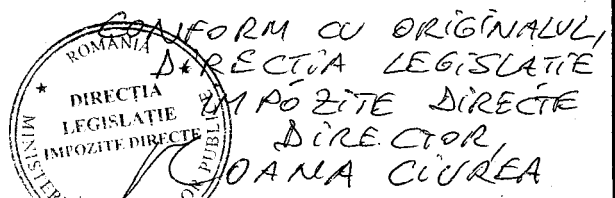 CONFORM CU ORIGINALUL,
DIRECȚIA LEGISLAȚIE
IMPOZITE DIRECTE
DIRECTOR,
IOANA CIUREA
ROMÂNIA
DIRECȚIA
LEGISLAȚIE
IMPOZITE DIRECTE